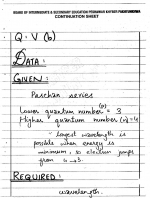 BOARD OF INTERMEDIATE & SECONDARY EDUCATION PESHAWAR KHYBER PAKHTUNKHWA
CONTINUATION SHEET
Q. V (b)
DATA:
GIVEN:
Paschen series
Lower quantum number (p) = 3
Higher quantum number (n) = 4
"Longest wavelength is
possible when energy is
minimum, so electron jumps
from 4→3.
REQUIRED:
wavelength.